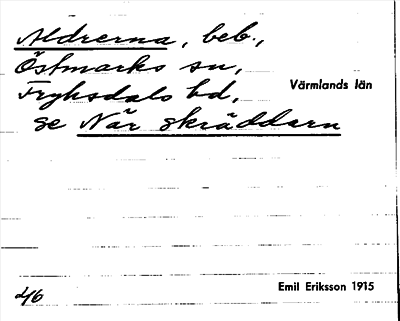 Aldrerna, beb.,
Östmarks sn,
Fryksdals hd,
Värmlands län
se När skräddarn
Emil Eriksson 1915